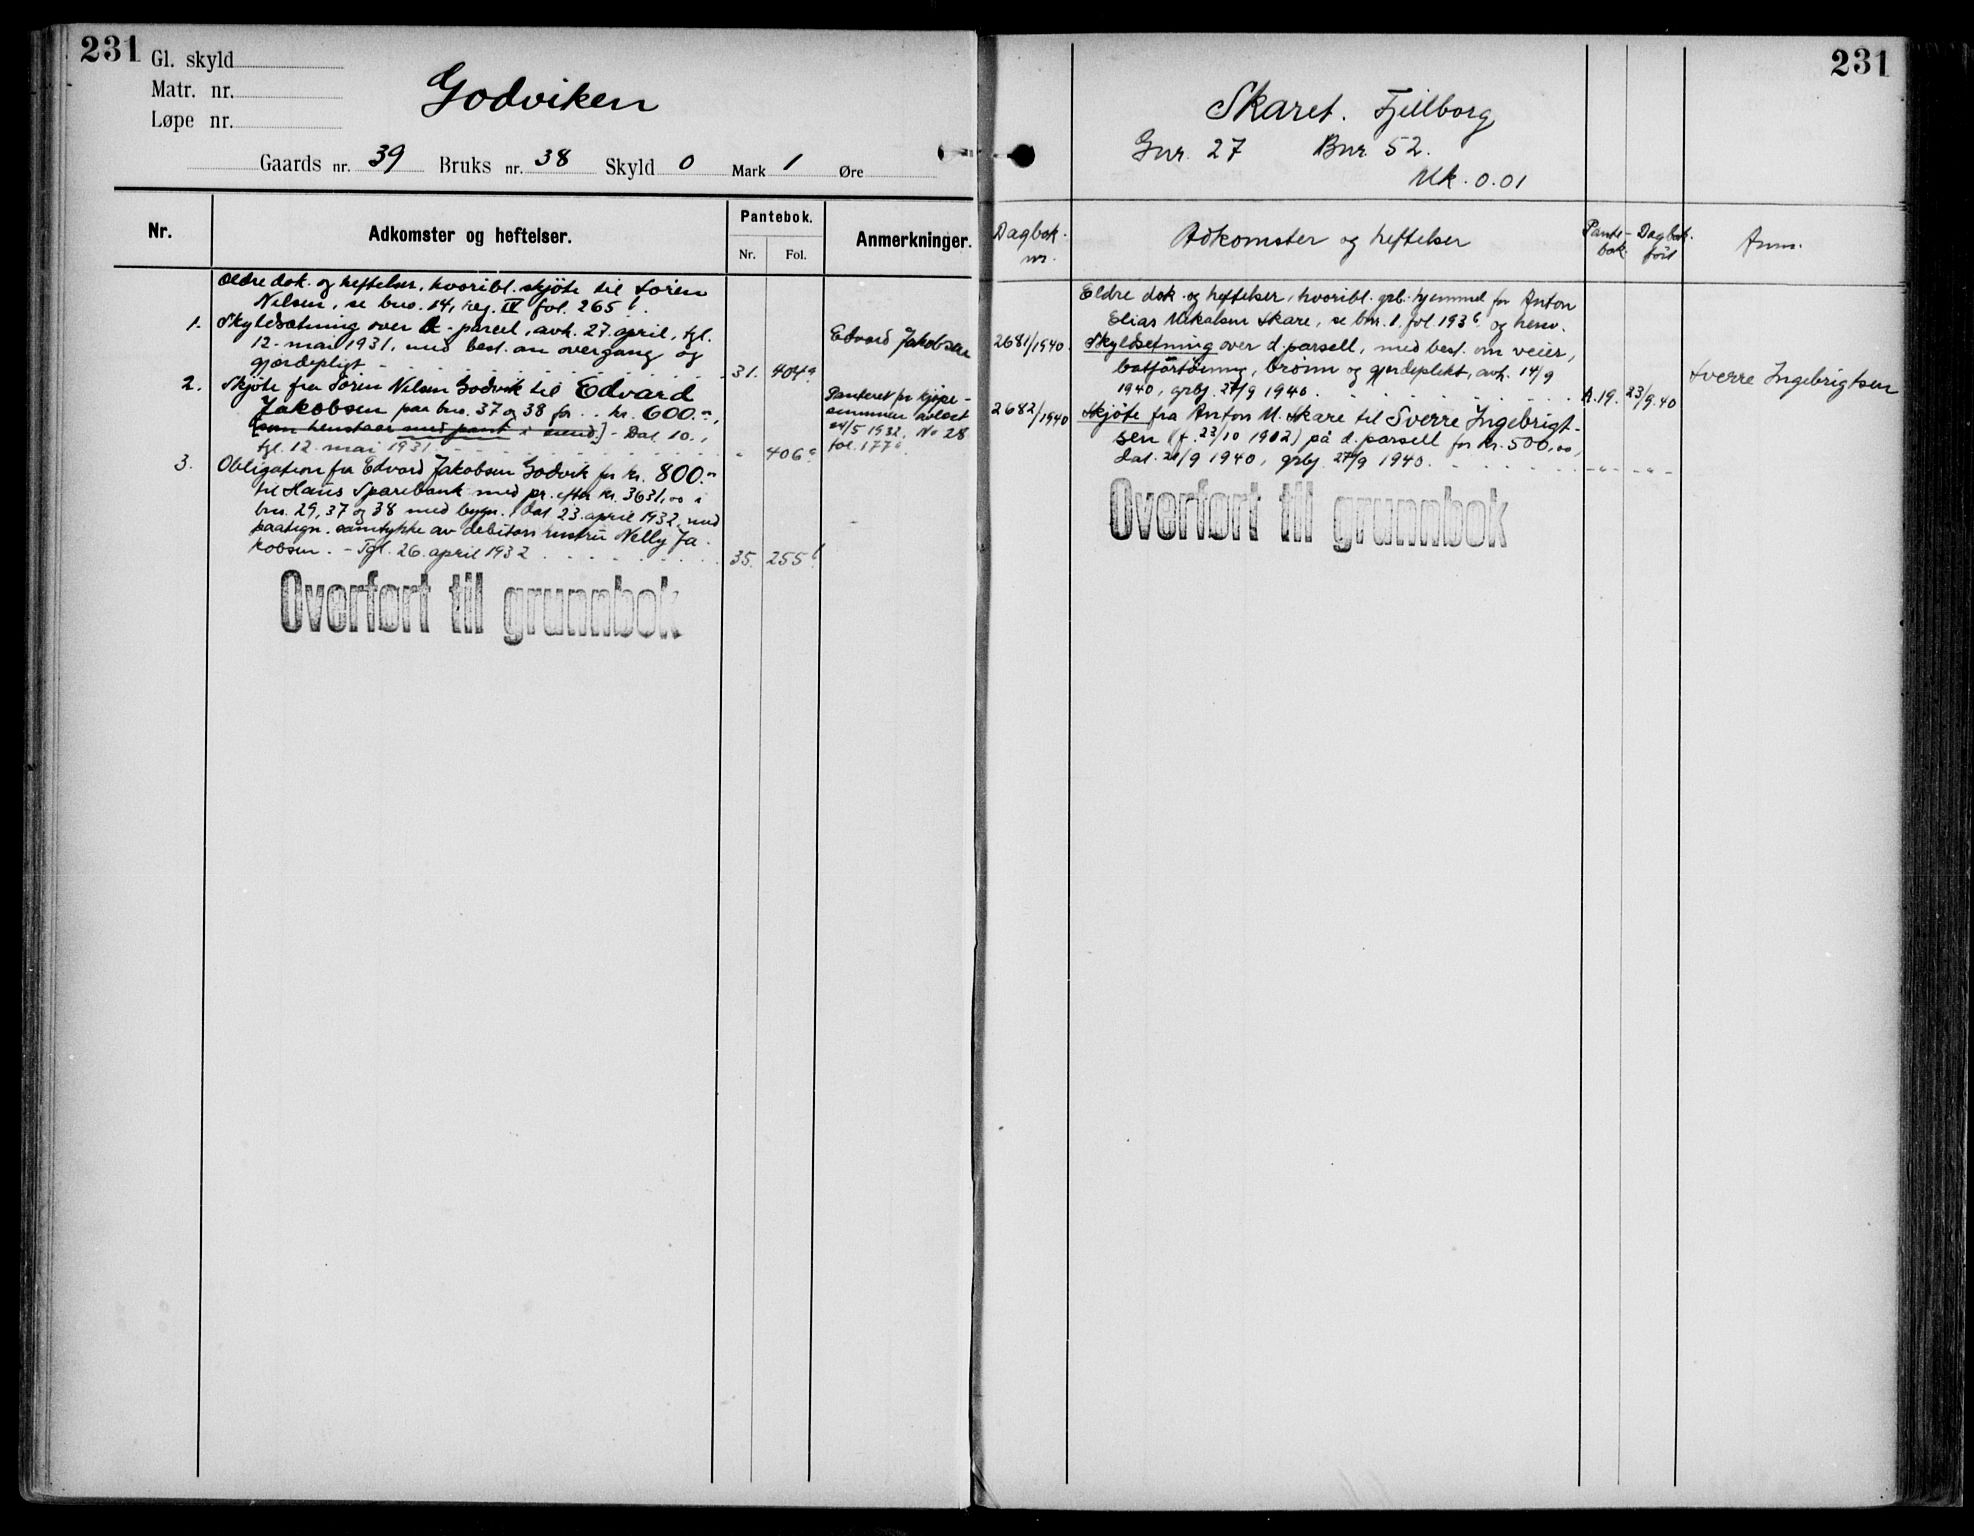 231
Gl. skyld
Matr. nr.
Løpe nr.
Godviken
Gaards nr. 39 Bruks nr. 38 Skyld 0 Mark 1 Øre
Nr.
Adkomster og heftelser.
Pantebok.
Nr. Fol.
Anmerkninger.
Ældre dok. og heftelser, hvoribl. skjöte til Sören
Nilsen, se bno. 14, reg. IV fol. 265 b.
1. Skyldsætning over d. parcel, avh. 27. april, tgl.
12. mai 1931, med best. om overgang og
gjærdepligt 31. 404a
Edvard Jakobsen
2. Skjöte fra Sören Nilsen Godvik til Edvard
Jakobsen paa bno. 37 og 38 for kr. 600.-,
[som henstaar med pant i eiend.] - Dat. 10.,
tgl. 12. mai 1931 " 406a
Panteret for kjøpe-
summen avlæst
24/5 1932, No 28
fol. 177a.
3. Obligation fra Edvard Jakobsen Godvik for kr. 800.-
til Haus Sparebank med pr. efter kr. 3631,00 i
bno. 29, 37 og 38 med bygn. Dat. 23. april 1932, med
paategn. samtykke av debitors hustru Nelly Ja-
kobsen. - Tgl. 26. april 1932 35. 255b.
Overført til grunnbok
231
Skaret. Fjellborg
Gnr. 27 Bnr. 52.
Mk. 0.01
Dagbok-
nr.
Adkomster og heftelser
Pante-
bok
Dagbok-
ført
Anm.
Eldre dok. og heftelser, hvoribl. grb. hjemmel for Anton
Elias Mikalsen Skare, se bnr. 1. fol. 193b og henv.
2681/1940. Skyldsetning over d. parsell, med best. om veier,
båtfortöining, brönn og gjerdeplikt, avh. 14/9
1940, grbj. 27/9 1940. A.19. 23/9.40
Sverre Ingebrigtsen
2682/1940 Skjöte fra Anton M. Skare til Sverre Ingebrigt-
sen (f. 23/10 1902) på d. parsell for kr. 500,00,
dat. 21/9 1940, grbj. 27/9 1940. -"- -"-
Overført til grunnbok